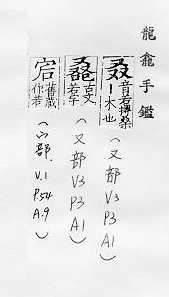 龍龕手鑑
叒 音若榑桑
丨木也
(又部 V3 P3 A1)
古文
若字
(又部 V3 P3 A1)
舊藏
作若
(宀部. V.1 P.54 A.9)